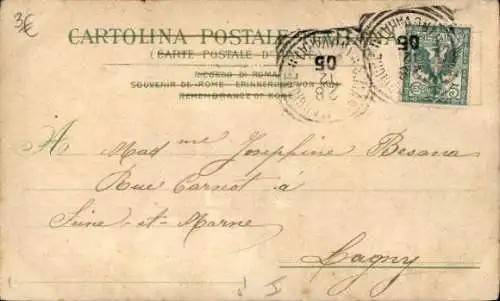 3€
CARTOLINA POSTALE
(CARTE POSTALE D'
RICORDO DI ROMA
SOUVENIR DE ROME - ERINNERUNG VON
REMEMBRANCE OF ROME
28
12
05
05
A Madme Josephine Besana
Rue Carnot à
Seine-et-Marne
Lagny